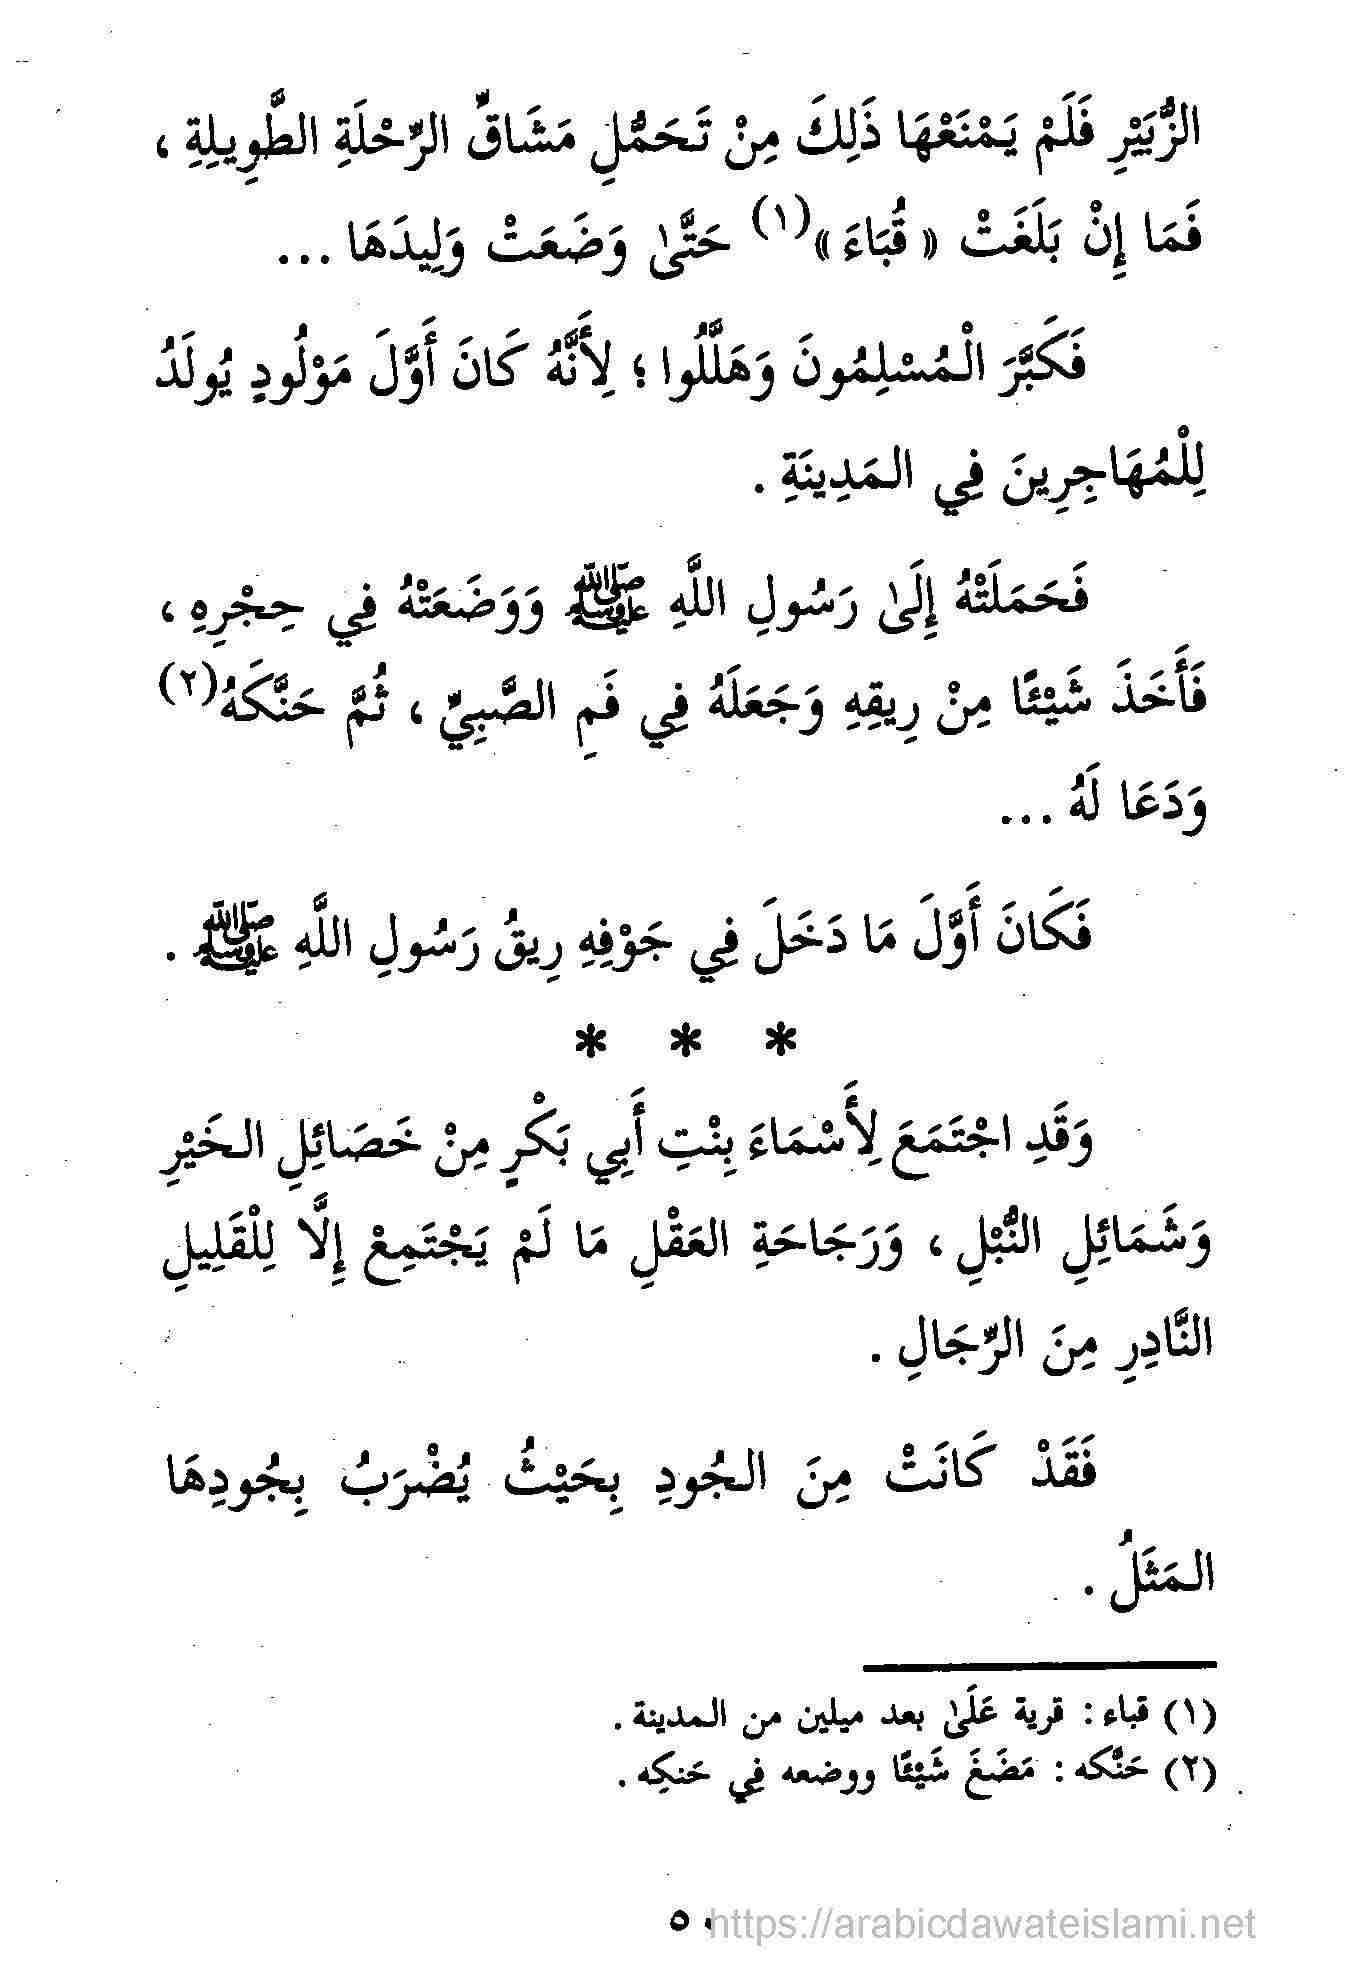 الزُّبَيْرِ فَلَمْ يَمْنَعْهَا ذَلِكَ مِنْ تَحَمُّلِ مَشَاقِّ الرِّحْلَةِ الطَّوِيلَةِ ،
فَمَا إِنْ بَلَغَتْ « قُبَاءَ »(١) حَتَّىٰ وَضَعَتْ وَلِيدَهَا ...
فَكَبَّرَ الْمُسْلِمُونَ وَهَلَّلُوا ؛ لِأَنَّهُ كَانَ أَوَّلَ مَوْلُودٍ يُولَدُ
لِلْمُهَاجِرِينَ فِي المَدِينَةِ .
فَحَمَلَتْهُ إِلَىٰ رَسُولِ اللَّهِ ﷺ وَوَضَعَتْهُ فِي حِجْرِهِ ،
فَأَخَذَ شَيْئًا مِنْ رِيقِهِ وَجَعَلَهُ فِي فَمِ الصَّبِيِّ ، ثُمَّ حَنَّكَهُ(٢)
وَدَعَا لَهُ ...
فَكَانَ أَوَّلَ مَا دَخَلَ فِي جَوْفِهِ رِيقُ رَسُولِ اللَّهِ ﷺ .
* * *
وَقَدِ اجْتَمَعَ لِأَسْمَاءَ بِنْتِ أَبِي بَكْرٍ مِنْ خَصَائِلِ الخَيْرِ
وَشَمَائِلِ النُّبْلِ ، وَرَجَاحَةِ العَقْلِ مَا لَمْ يَجْتَمِعْ إِلَّا لِلْقَلِيلِ
النَّادِرِ مِنَ الرِّجَالِ .
فَقَدْ كَانَتْ مِنَ الجُودِ بِحَيْثُ يُضْرَبُ بِجُودِهَا
المَثَلُ .
(١) قباء : قرية عَلَىٰ بعد ميلين من المدينة .
(٢) حَنَّكه : مَضَغَ شَيْئًا ووضعه فِي حَنكِه .
٥٠
https://arabicdawateislami.net